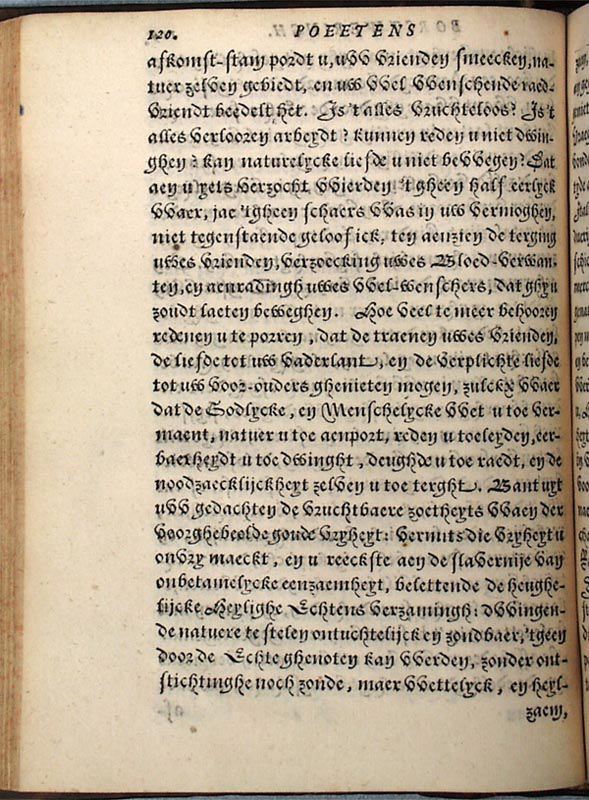 120. POEETENS
afkomst-stam pordt u, uvv vrienden smeecken, na-
tuer zelven gebiedt, en uw vvel vvenschende raed-
vriendt beedelt het. Is't alles vruchteloos? Is't
alles verlooren arbeydt? kunnen reden u niet dwin-
ghen? kan naturelycke liefde u niet bevvegen? Dat
aen u yets verzocht vvierden 'tgheen half eerlyck
vvaer, jae 'tgheen schaers vvas in uw vermoghen,
niet tegenstaende geloof ick, ten aenzien de terging
uwes vrienden, verzoecking uwes Bloed-verwan-
ten, en aenradingh uwes vvel-wenschers, dat ghy u
zoudt laeten beweghen. Hoe veel te meer behooren
redenen u te porren, dat de traenen uwes vrienden,
de liefde tot uw vaderlant, en de verplichte liefde
tot uw voor-ouders ghenieten mogen, zulckx vvaer
dat de Godlycke, en Menschelycke vvet u toe ver-
maent, natuer u toe aenport, reden u toeleyden, eer-
baerheydt u toe dwinght, deughde u toe raedt, en de
noodzaecklijckheyt zelven u toe terght. Bant uyt
uvv gedachten de vruchtbaere zoetheyts vvaen der
voorghebeelde goude vryheyt: vermits die vryheyt u
onvry maeckt, en u reeckste aen de slavernije van
onbetamelycke eenzaemheyt, belettende de heughe-
lijcke Heylighe Echtens verzamingh: dvvingen-
de natuere te stelen ontuchtelijck en zondbaer, 'tgeen
door de Echte ghenoten kan vverden, zonder ont-
stichtinghe noch zonde, maer vvettelyck, en heyl-
zaem,